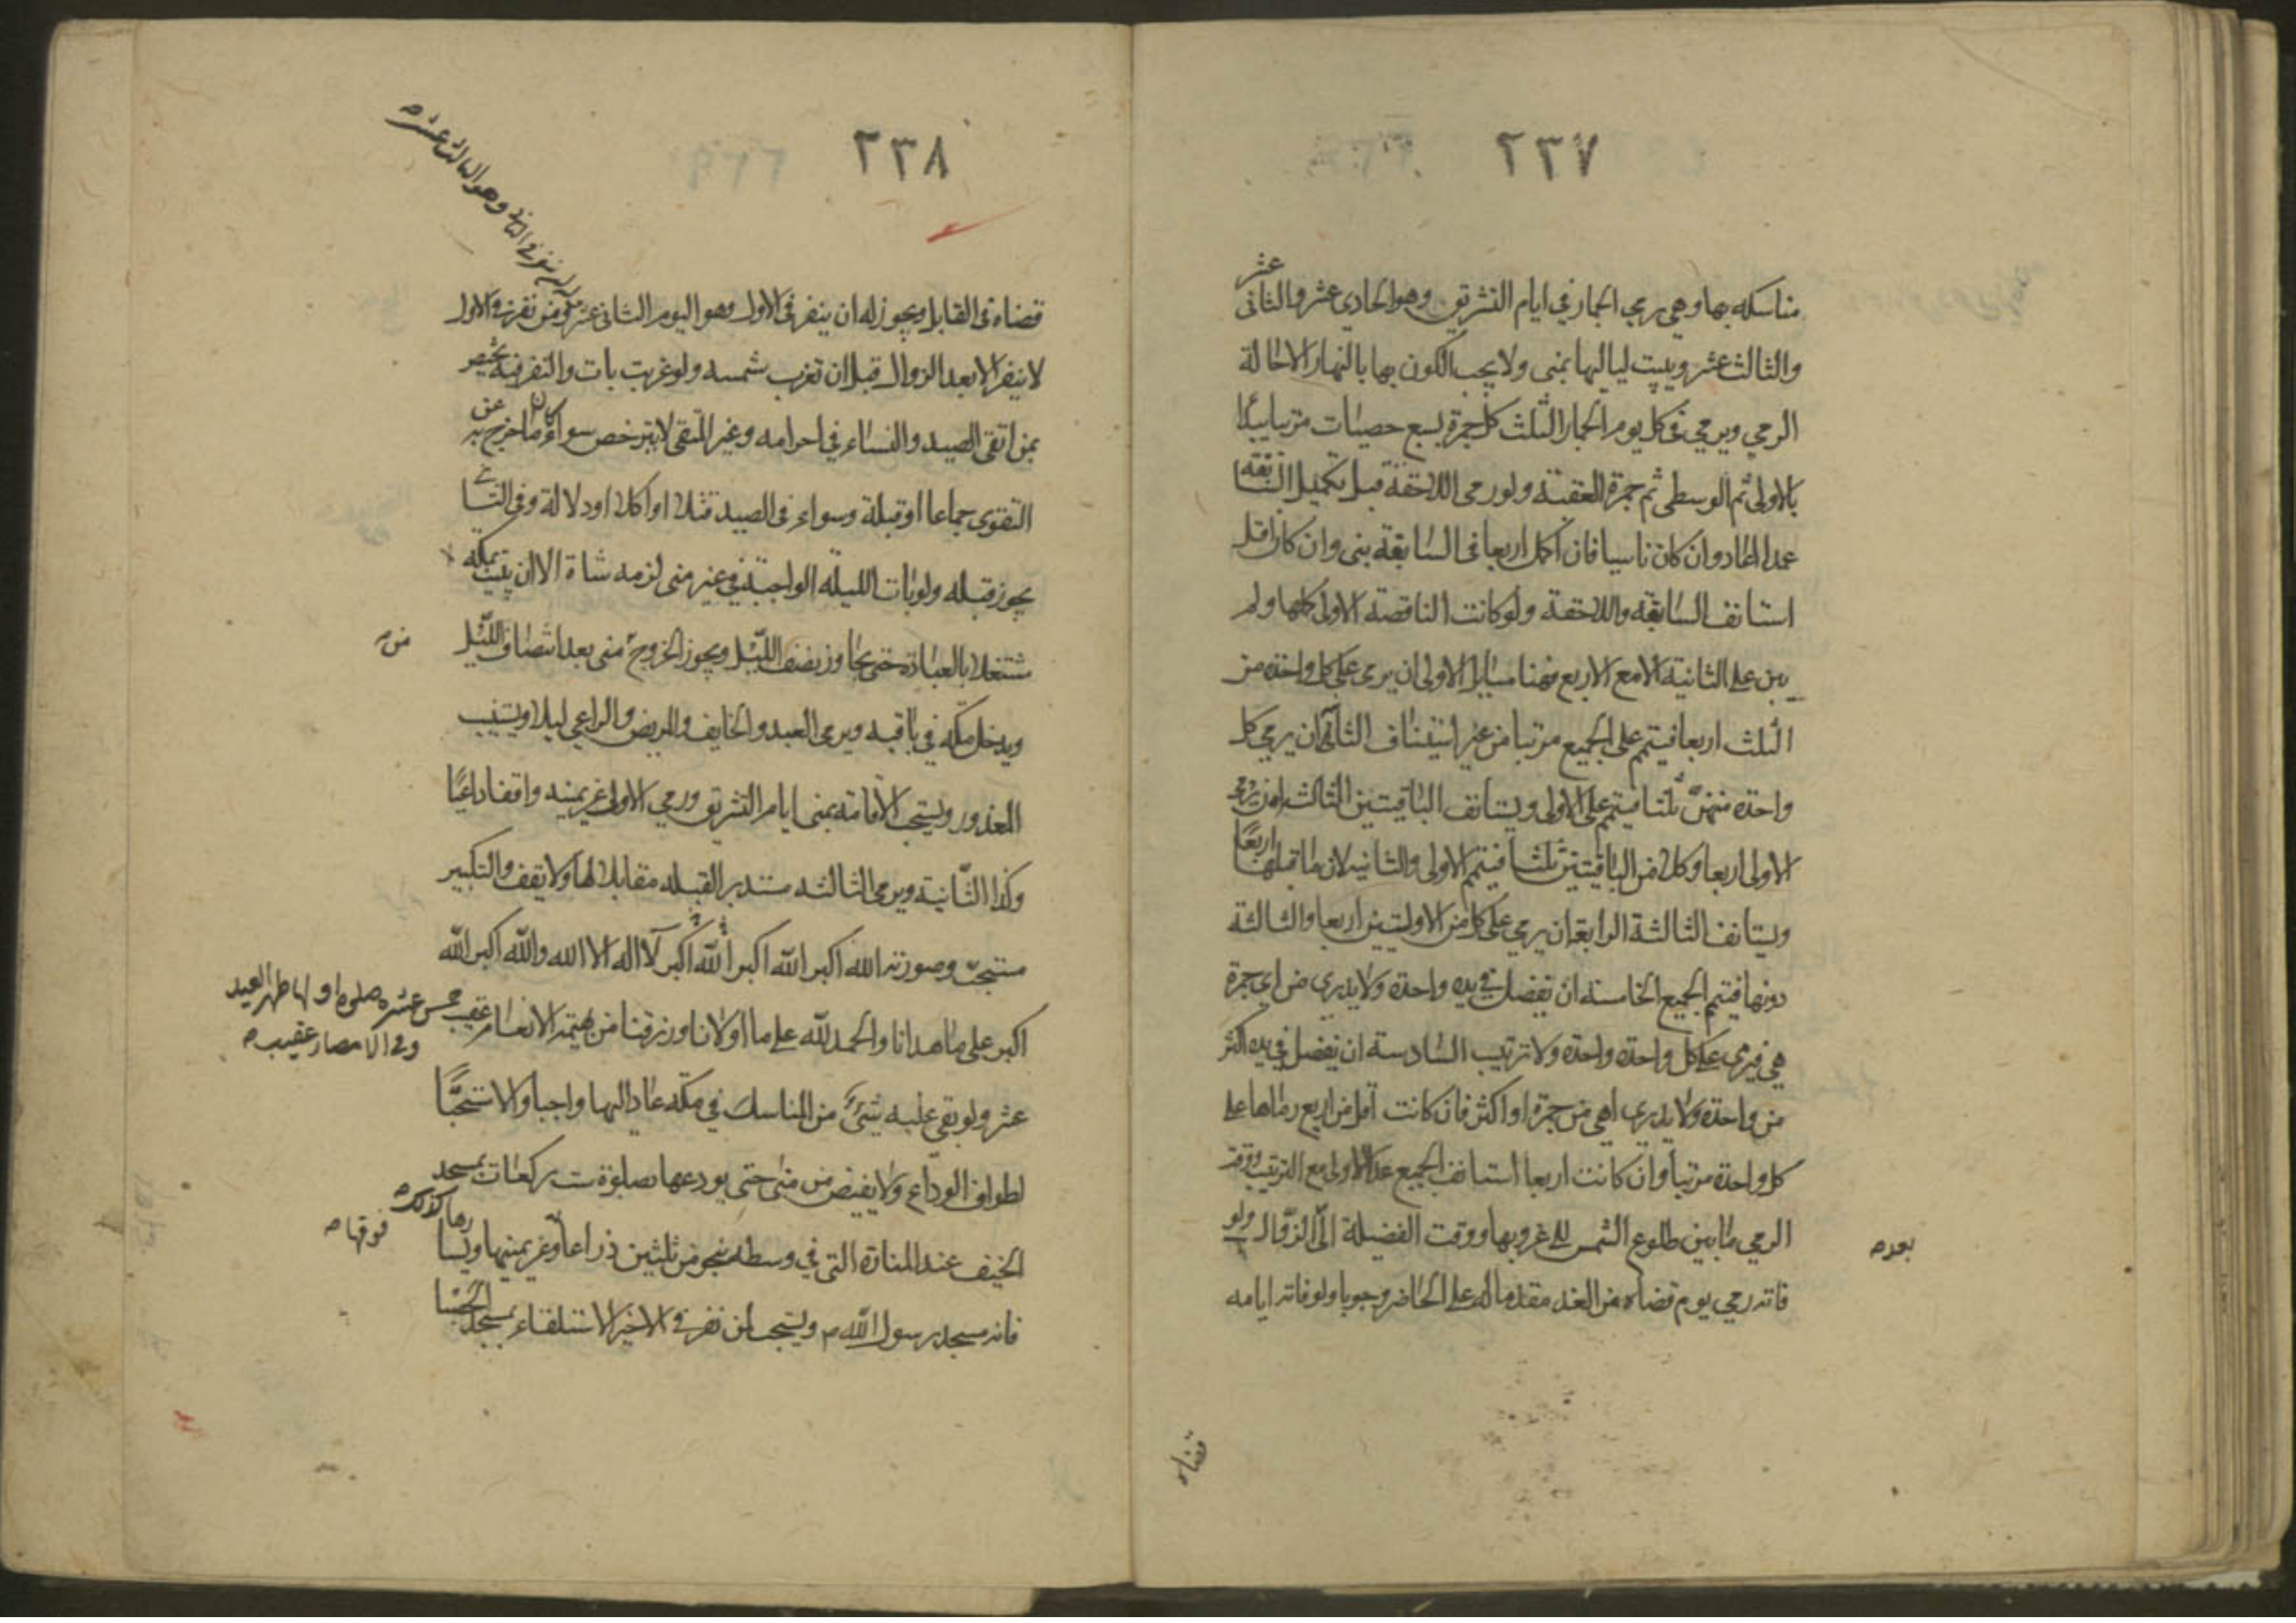 ٢٣٧
مناسكه بها وهي رمي الجمار في ايام التشريق وهو الحادي عشر والثاني عشر
والثالث عشر ويبيت لياليها بمنى ولا يجب الكون بها بالنهار الا حالة
الرمي ويرمي في كل يوم الجمار الثلث كل جمرة بسبع حصيات مرتبا يبدأ
بالاولى ثم الوسطى ثم جمرة العقبة ولو رمى اللاحقة قبل تكميل السابقة
عمدا اعاد وان كان ناسيا فان اكمل اربعا في السابقة بنى وان كان اقل
استانف السابقة واللاحقة ولو كانت الناقصة الاولى كلها ولم
يبن على الثانية الا مع الاربع فهنا مسايل الاولى ان يرمي على كل واحدة من
الثلث اربعا فيتم على الجميع مرتبا من غير استيناف الثانية ان يرمي كل
واحدة منهن ثلثا فيتم على الاولى ويستانف الباقيتين الثالثة ان يرمي
الاولى اربعا وكلا من الباقيتين ثلثا فيتم الاولى والثانية لان ما قبلها اربعا
ويستانف الثالثة الرابعة ان يرمي على كل من الاوليين اربعا والثالثة
دونها فيتم الجميع الخامسة ان تفضل في يده واحدة ولا يدري من اي جمرة
هي فيرمي على كل واحدة واحدة ولا ترتيب السادسة ان يفضل في يده اكثر
من واحدة ولا يدري اهي من جمرة او اكثر فان كانت اقل من اربع رماها على
كل واحدة مرتبا وان كانت اربعا استانف الجميع عدا الاولى مع الترتيب ووقت
الرمي ما بين طلوع الشمس الى غروبها ووقت الفضيلة الى الزوال ولو
بعده
فاته رمي يوم قضاه من الغد مقدما له على الحاضر وجوبا ولو فاته ايامه
قضاه
٢٣٨
قضاه في القابل ويجوز له ان ينفر في الاول وهو اليوم الثاني عشر ومن نفر في الاول
وهو الثالث عشر
لا ينفر الا بعد الزوال قبل ان تغرب شمسه ولو غربت بات والنفر فيه يختص
بمن اتقى الصيد والنساء في احرامه وغير المتقي لا يترخص سواء كان ما خرج به عن
التقوى جماعا او قبلة وسواء في الصيد قتلا او اكلا او دلالة وفي الثاني
يجوز قبله ولو بات الليلة الواجبة في غير منى لزمه شاة الا ان يبيت بمكة
مشتغلا بالعبادة حتى يجاوز نصف الليل ويجوز الخروج منى بعد انتصاف الليل
من
ويدخل مكة في باقيه ويرمي العبد والخايف والمريض والراعي ليلا ويستنيب
المعذور ويستحب الاقامة بمنى ايام التشريق ورمي الاولى عن يمينه واقفا داعيا
وكذا الثانية ويرمي الثالثة مستدبر القبلة مقابلا لها ولا يقف والتكبير
مستحب وصورته الله اكبر الله اكبر الله اكبر لا اله الا الله والله اكبر الله
اكبر على ما هدانا والحمد لله على ما اولانا ورزقنا من بهيمة الانعام عقيب
خمس عشرة صلوة اولها ظهر العيد
وفي الامصار عقيب
عشر ولو بقي عليه شيء من المناسك في مكة عاد اليها واجبا والا استحبابا
لطواف الوداع ولا يفيض من منى حتى يودعها بصلوة ست ركعات بمسجد
الخيف عند المنارة التي في وسطه بنحو من ثلثين ذراعا وعن يمينها ويسارها كذلك
فوقها
فانه مسجد رسول الله ويستحب لمن نفر في الاخير الاستلقاء بمسجد الحصبا